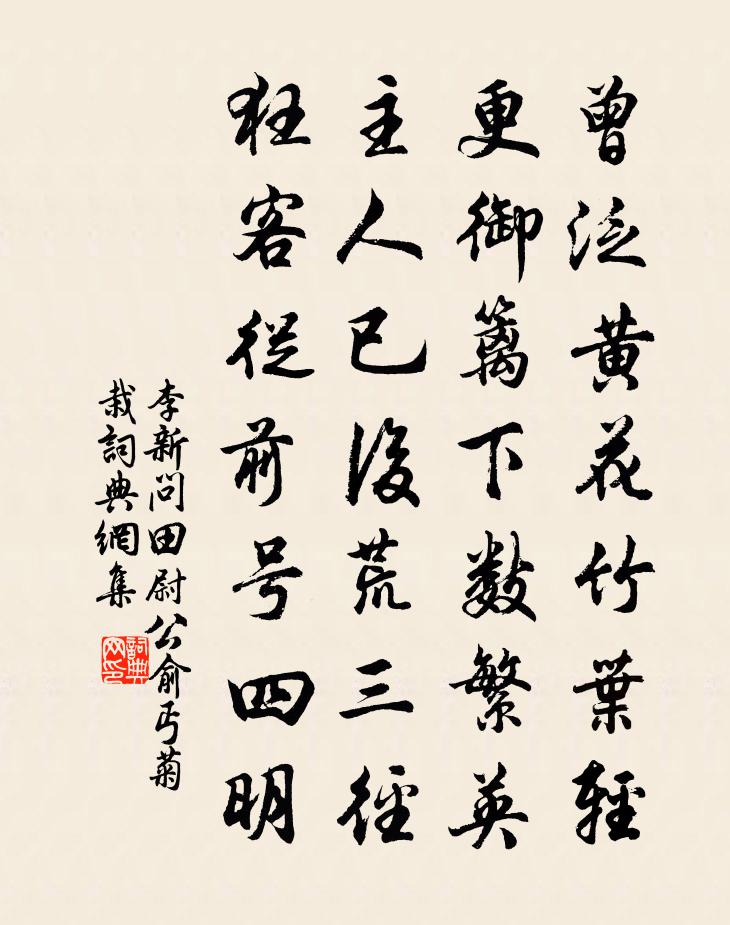 曾泛黄花竹葉輕
更御籬下數繁英
主人已後荒三徑
狂客從前号四明
李新問田尉公俞丐菊
栽詞典網集
詞典网印